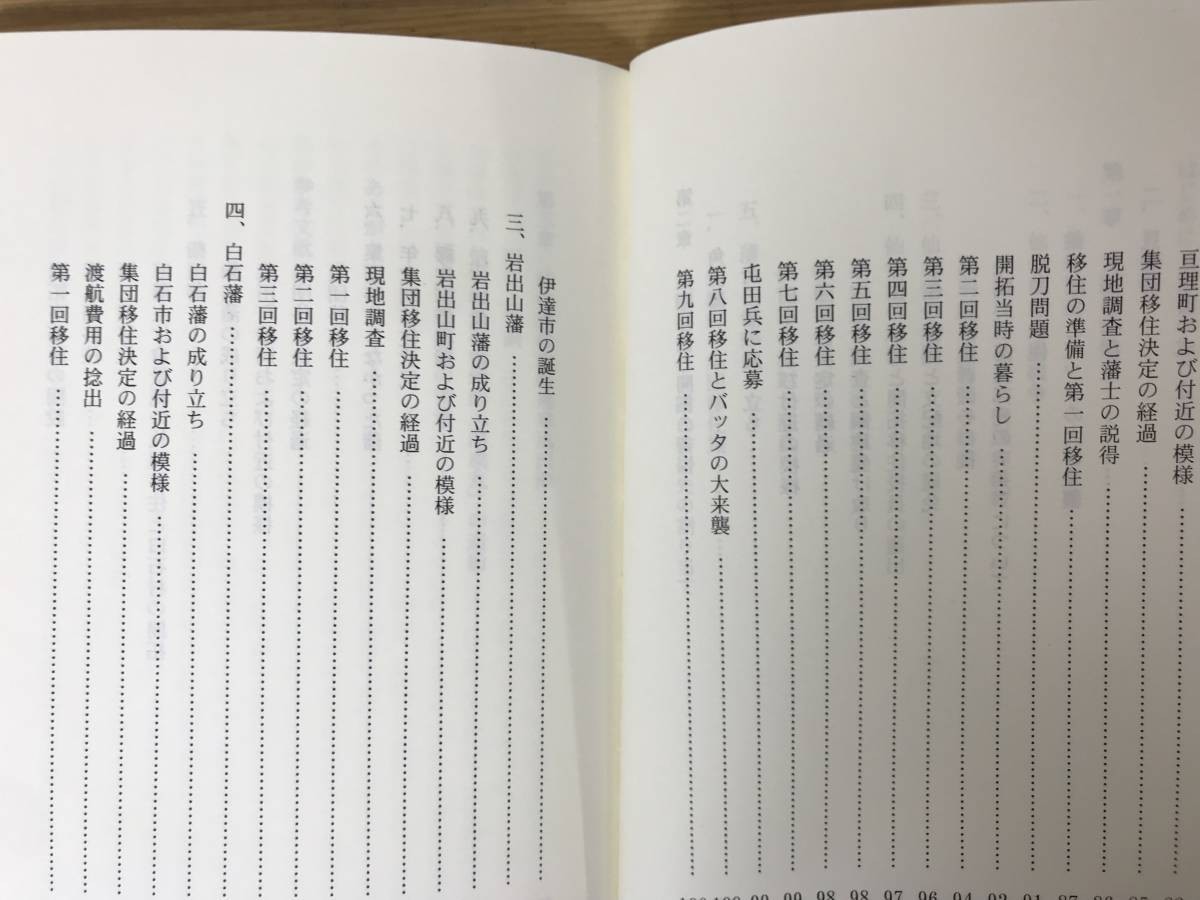 亘理町および付近の模様
集団移住決定の経過
現地調査と藩士の説得
移住の準備と第一回移住
脱刀問題
開拓当時の暮らし
第二回移住
第三回移住
第四回移住
第五回移住
第六回移住
第七回移住
屯田兵に応募
第八回移住とバッタの大来襲
第九回移住
伊達市の誕生
三、岩出山藩
岩出山藩の成り立ち
岩出山町および付近の模様
集団移住決定の経過
現地調査
第一回移住
第二回移住
第三回移住
四、白石藩
白石藩の成り立ち
白石市および付近の模様
集団移住決定の経過
渡航費用の捻出
第一回移住